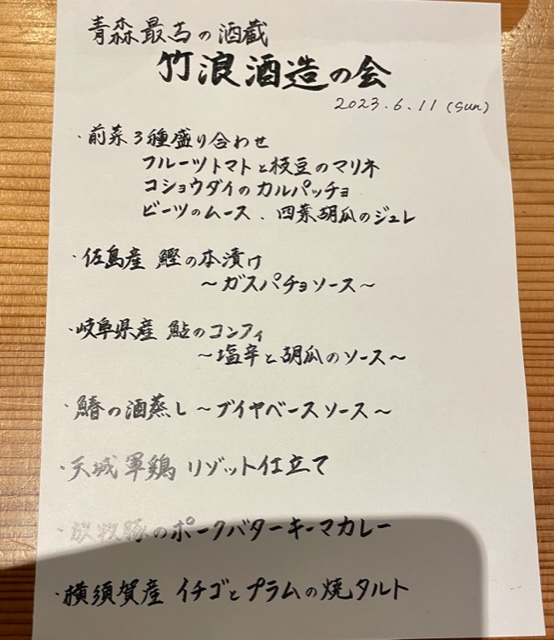 青森最古の酒蔵
竹浪酒造の会
2023.6.11 (sun)
・前菜3種盛り合わせ
フルーツトマトと枝豆のマリネ
コショウダイのカルパッチョ
ビーツのムース、四葉胡瓜のジュレ
・佐島産 鰹の本漬け
～ガスパチョソース～
・岐阜県産 鮎のコンフィ
～塩辛と胡瓜のソース～
・鰆の酒蒸し～ブイヤベースソース～
・天城軍鶏 リゾット仕立て
・放牧豚のポークバターキーマカレー
・横須賀産 イチゴとプラムの焼タルト